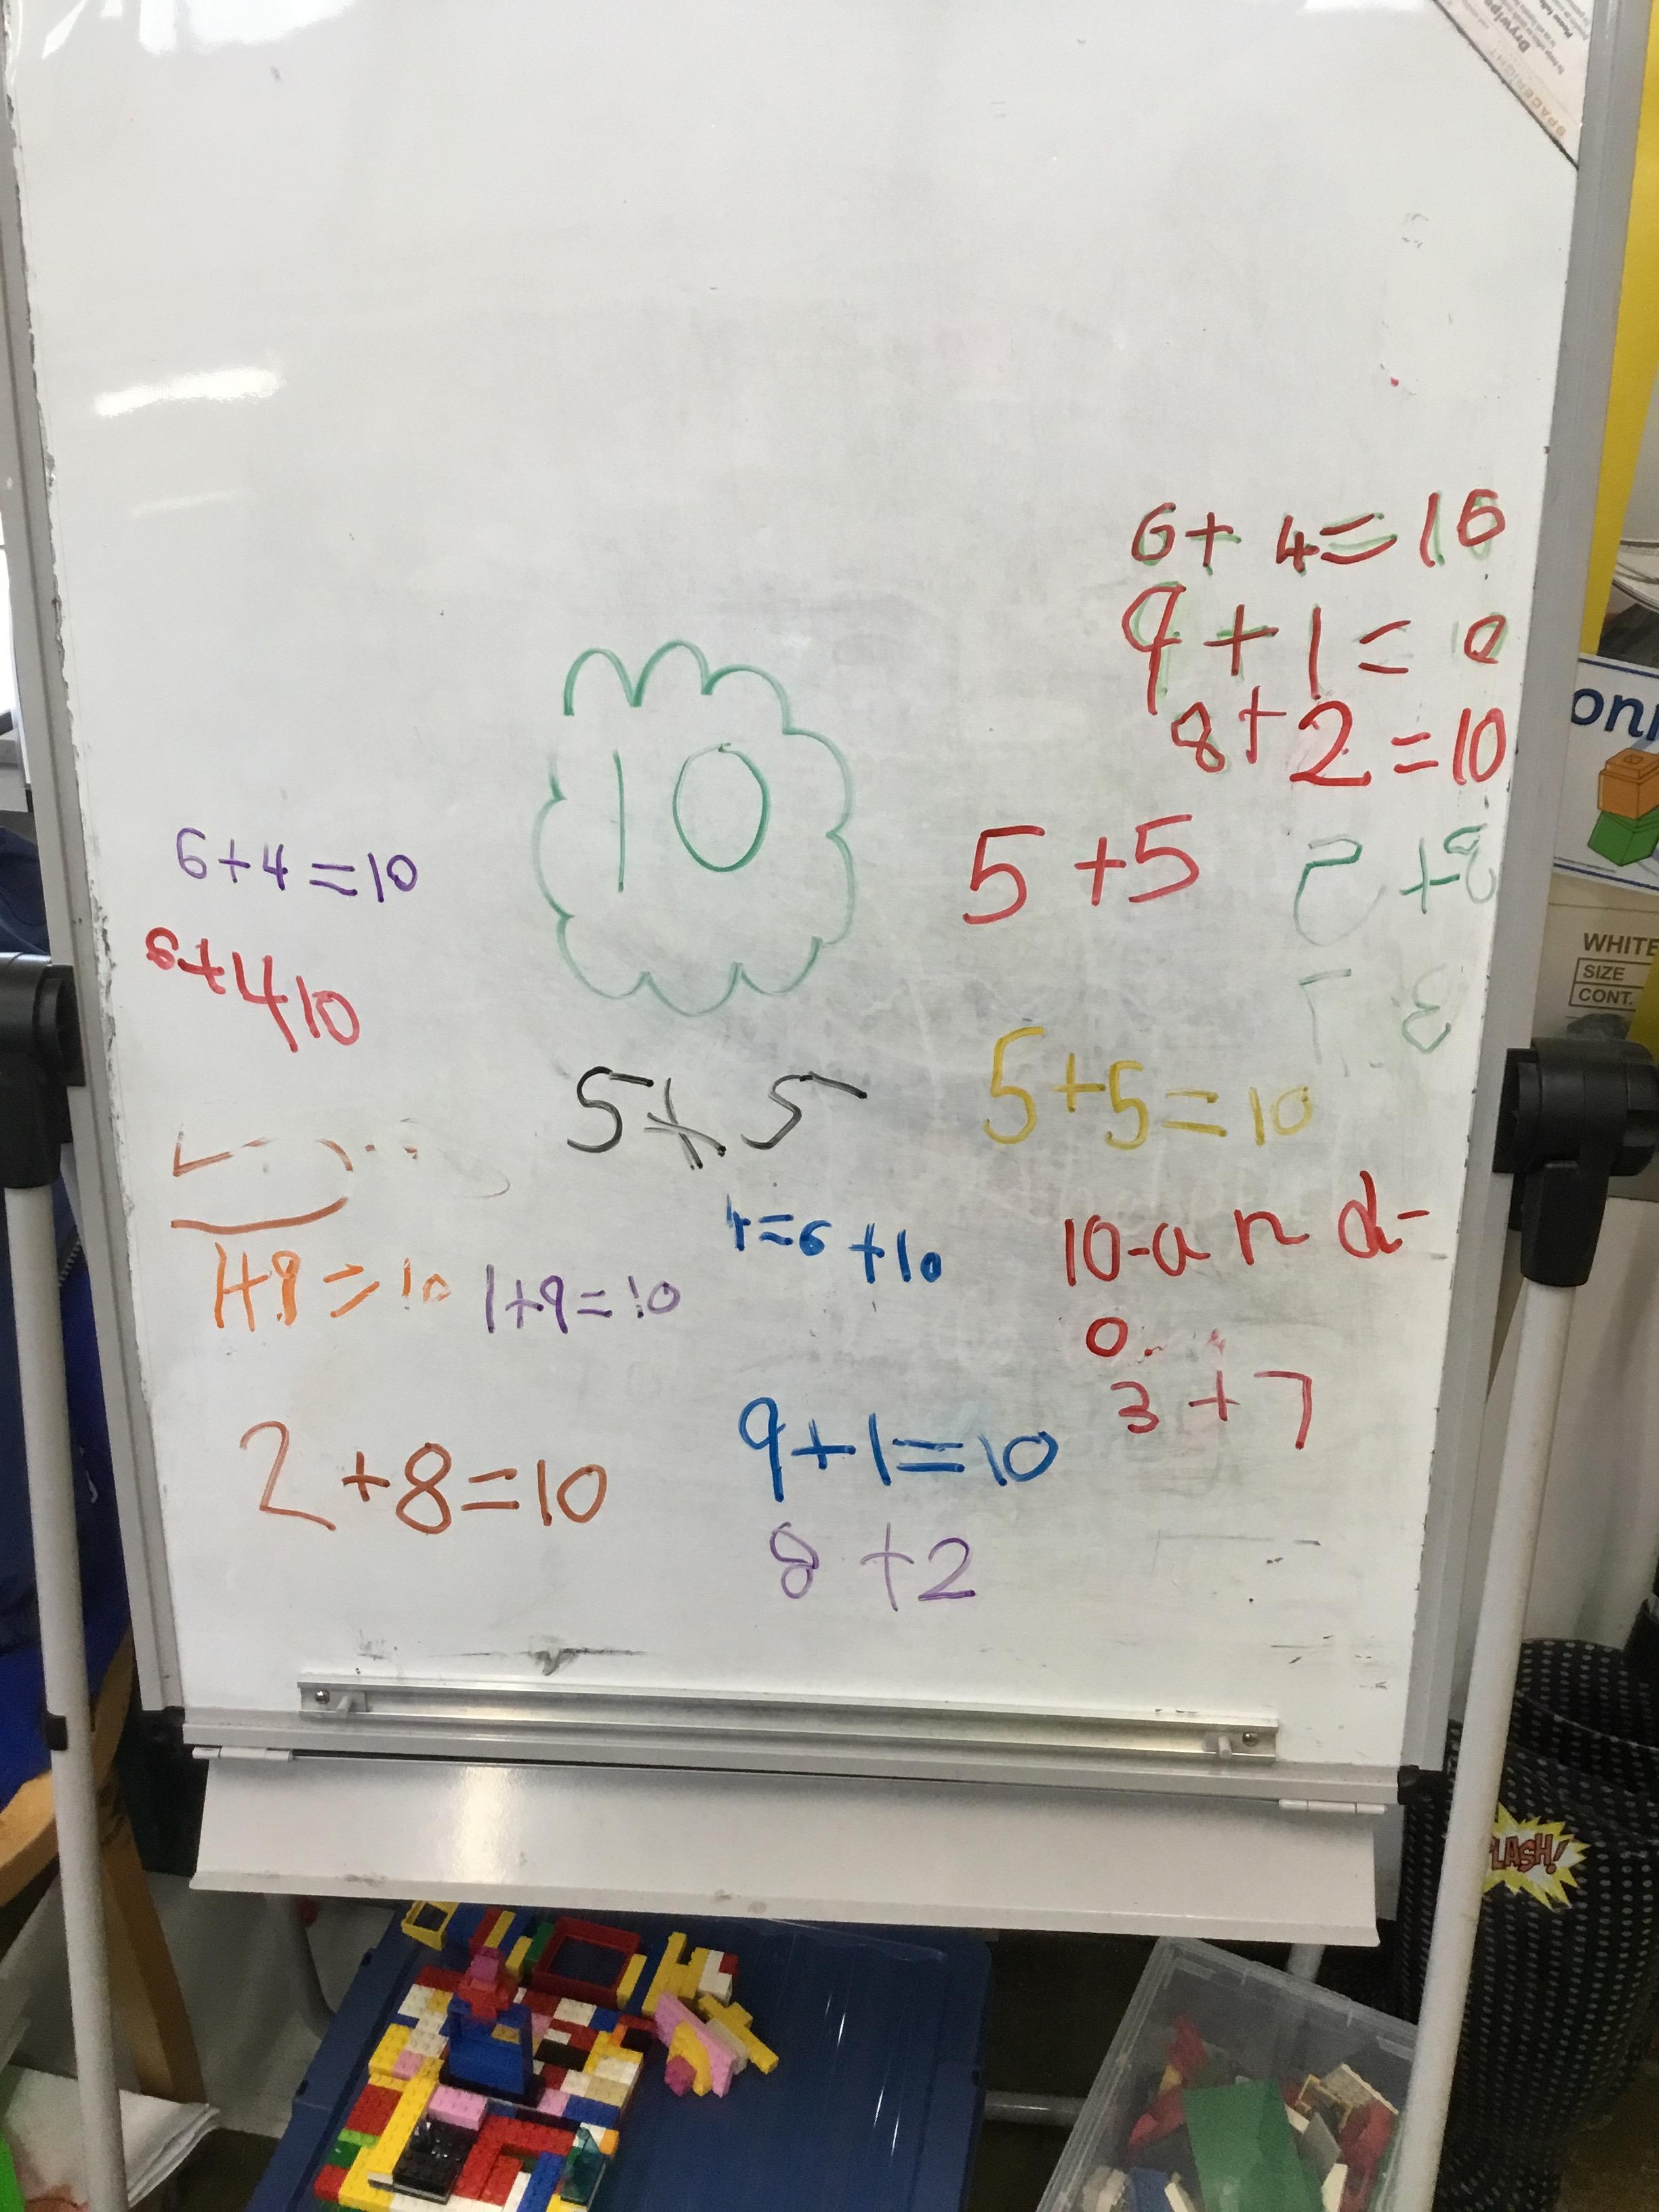 Drywipe
SPACERIGHT
6+4=10
9+1=10
8+2=10
10
5+5
6+4=10
6+410
5+5
5+5=10
WHITE
SIZE
CONT.
4=6+10
10-and-
0
1+9=10
1+9=10
3+7
9+1=10
2+8=10
8+2
LASH!